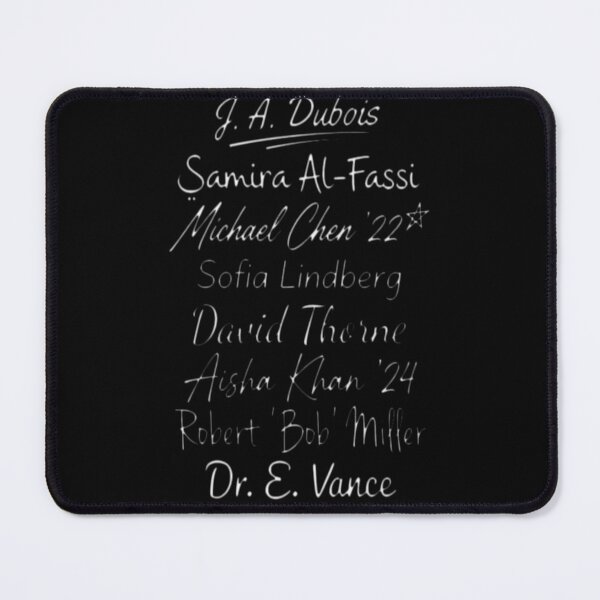 J. A. Dubois
Samira Al-Fassi
Michael Chen '22
Sofia Lindberg
David Thorne
Aisha Khan '24
Robert 'Bob' Miller
Dr. E. Vance